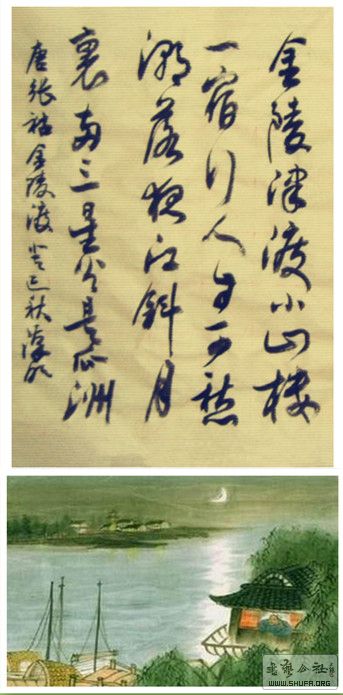 金陵津渡小山楼
一宿行人自可愁
潮落夜江斜月
裏两三星火是瓜洲
唐張祜金陵渡癸巳秋
書藝公社
WWW.SHUFA.ORG